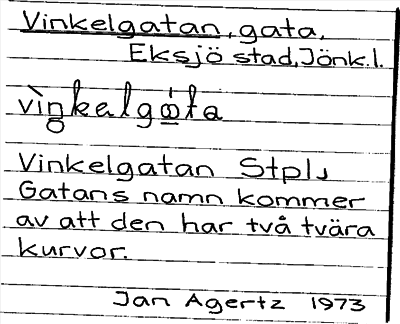 Vinkelgatan, gata,
Eksjö stad, Jönk.l.
Vinkelgatan Stpl,
Gatans namn kommer
av att den har två tvära
kurvor.
Jan Agertz 1973